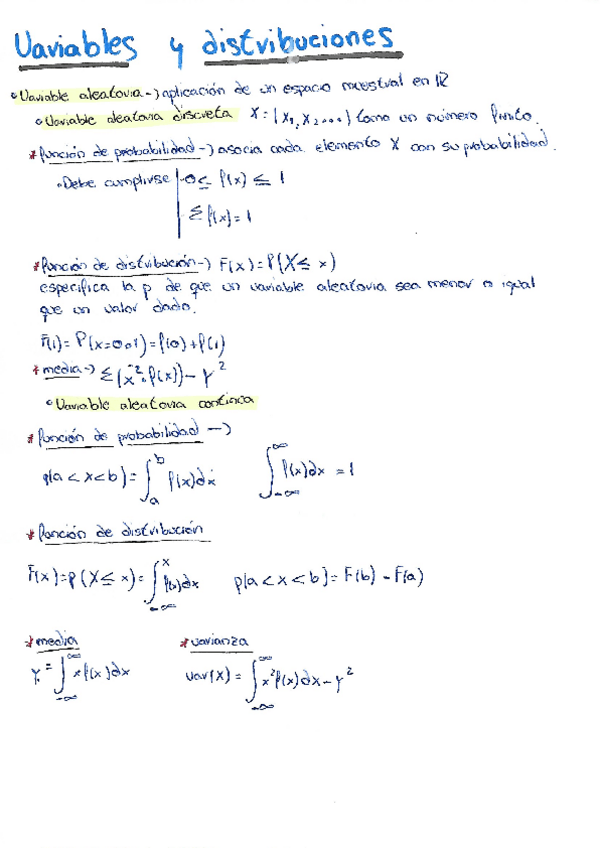 Variables y distribuciones
• Variable aleatoria -> aplicación de un espacio muestral en ℝ
• Variable aleatoria discreta X = {x₁, x₂ ....} toma un número finito.
* función de probabilidad -> asocia cada elemento X con su probabilidad.
• Debe cumplirse | 0 ≤ f(x) ≤ 1
Σ f(x) = 1
* función de distribución -> F(x) = P(X ≤ x)
especifica la p de que un variable aleatoria sea menor o igual
que un valor dado.
F(1) = P(x = 0 o 1) = f(0) + f(1)
* media -> Σ(x² · f(x)) - μ²
• Variable aleatoria continua
* función de probabilidad ->
p(a < x < b) = ∫ₐᵇ f(x)dx ∫₋∞^∞ f(x)dx = 1
* función de distribución
F(x) = p(X ≤ x) = ∫₋∞^x f(x)dx p(a < x < b) = F(b) - F(a)
* media * varianza
μ = ∫₋∞^∞ x f(x)dx var(X) = ∫₋∞^∞ x² f(x)dx - μ²